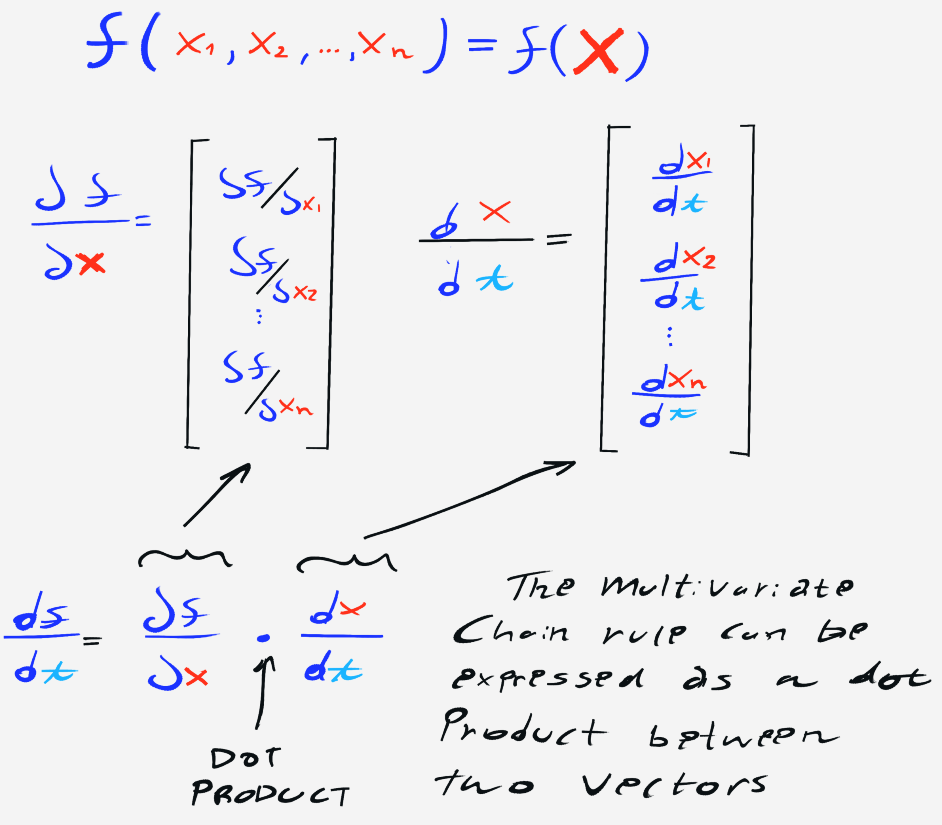 f(x₁, x₂, ..., xₙ) = f(x)
∂f/∂x = [∂f/∂x₁
∂f/∂x₂
⋮
∂f/∂xₙ]
dx/dt = [dx₁/dt
dx₂/dt
⋮
dxₙ/dt]
df/dt = ∂f/∂x · dx/dt
DOT
PRODUCT
The multivariate
Chain rule can be
expressed as a dot
Product between
two vectors